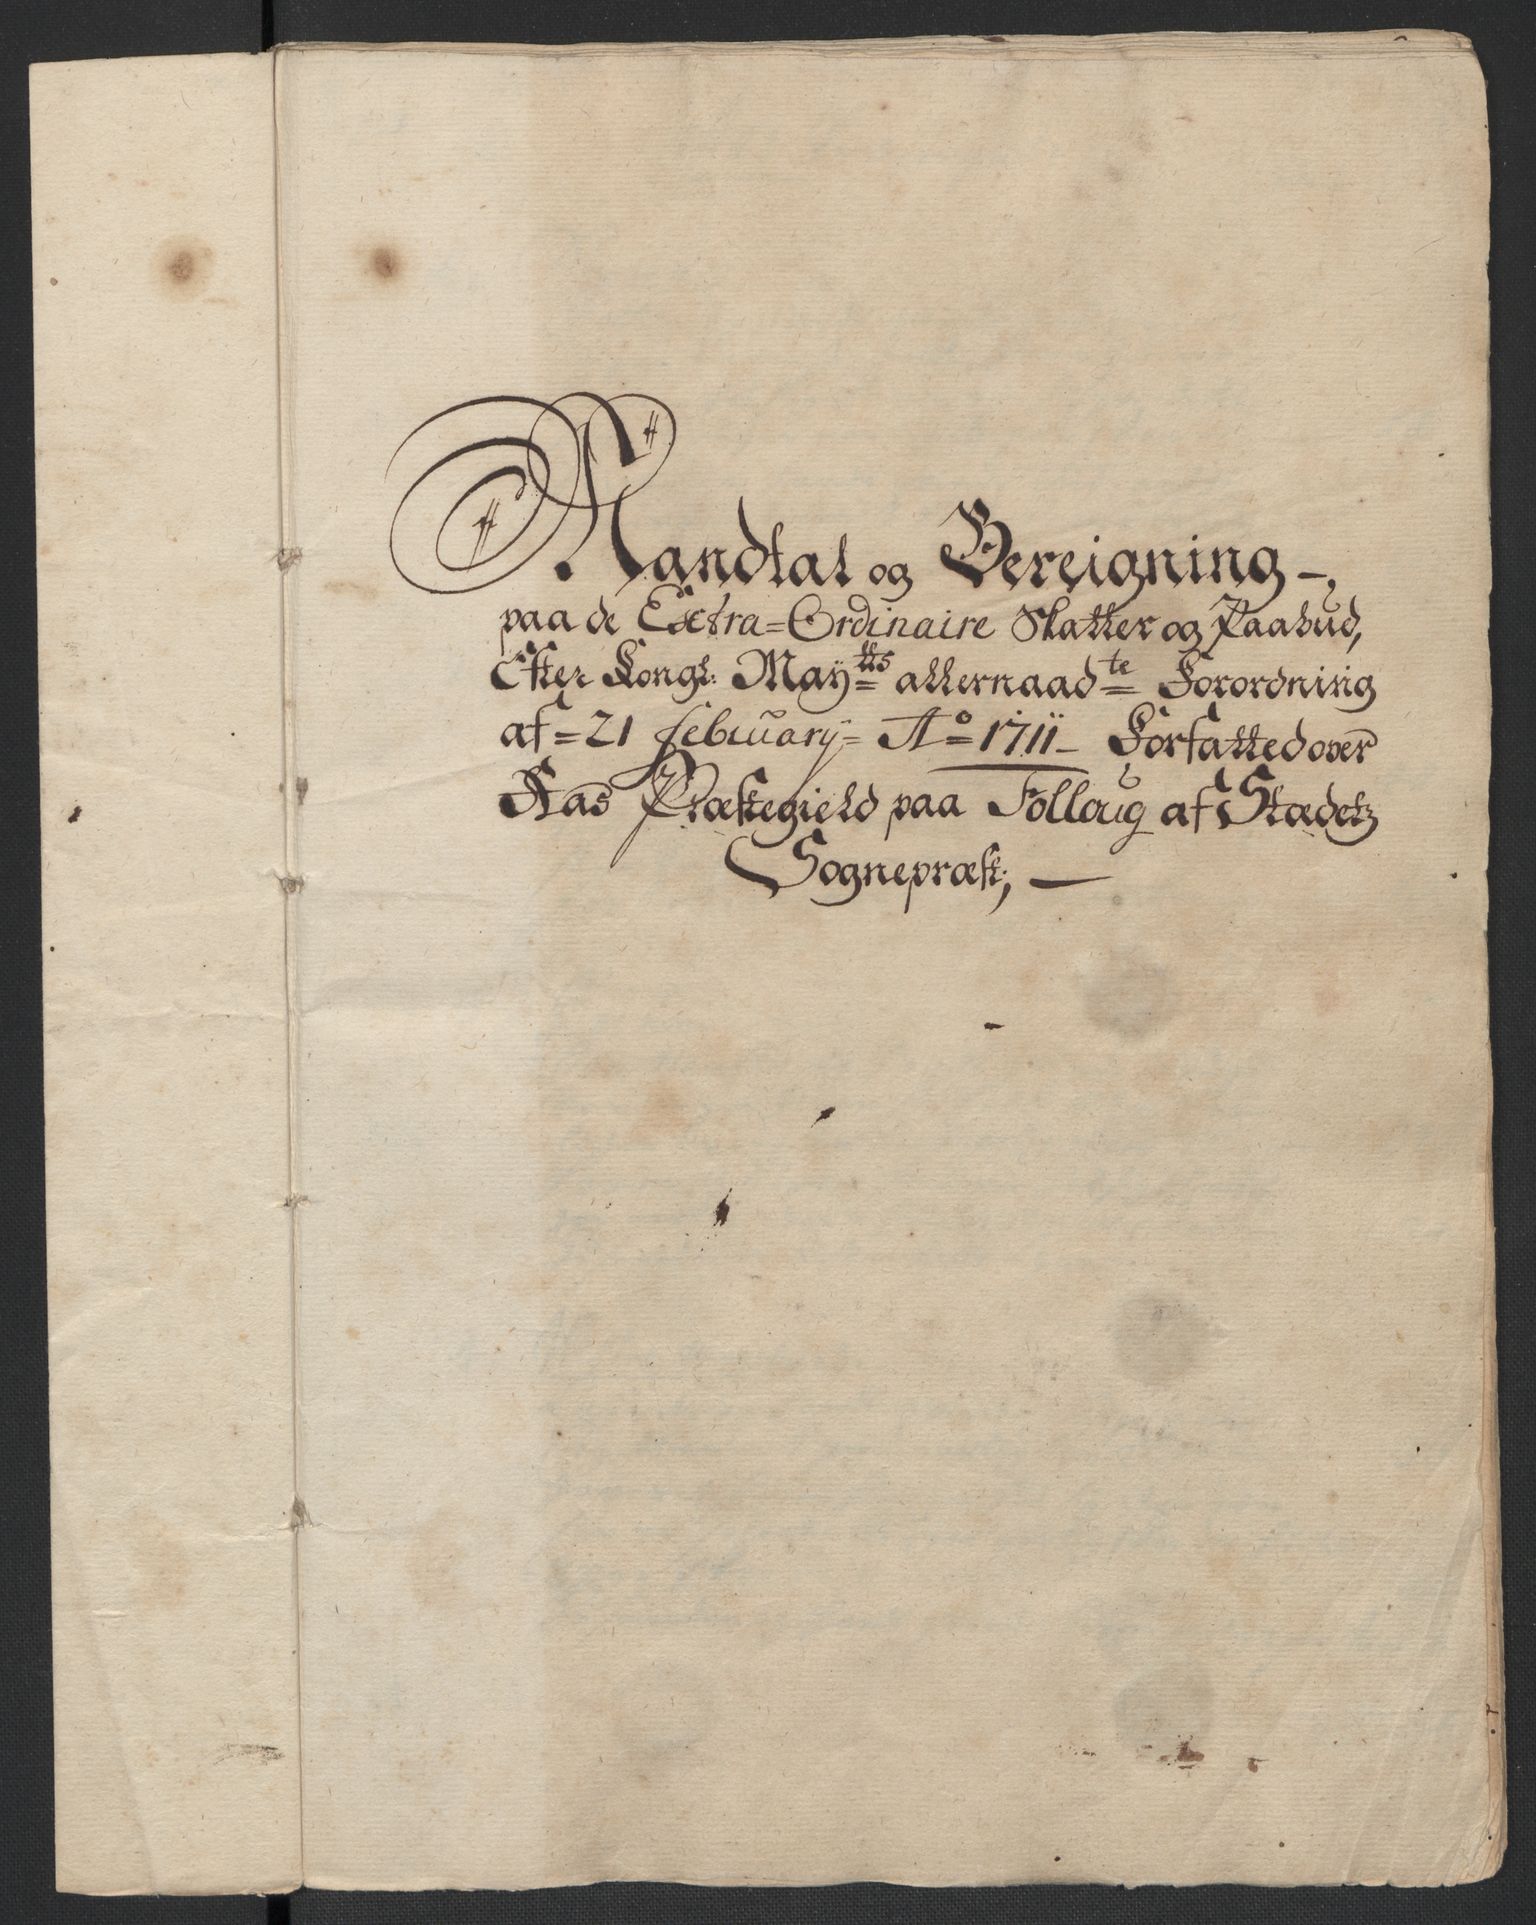 Mandtal og Bereigning –
paa de Extra=Ordinaire Skatter og Paabud,
Efter Kongl: Mayᵗᵗˢ allernaadᵗᵉ Forordning
af 21 februarij Aº 1711 – Forfatted over
Aas Præstegield paa Følloug af Stædetz
Sognepræst, —